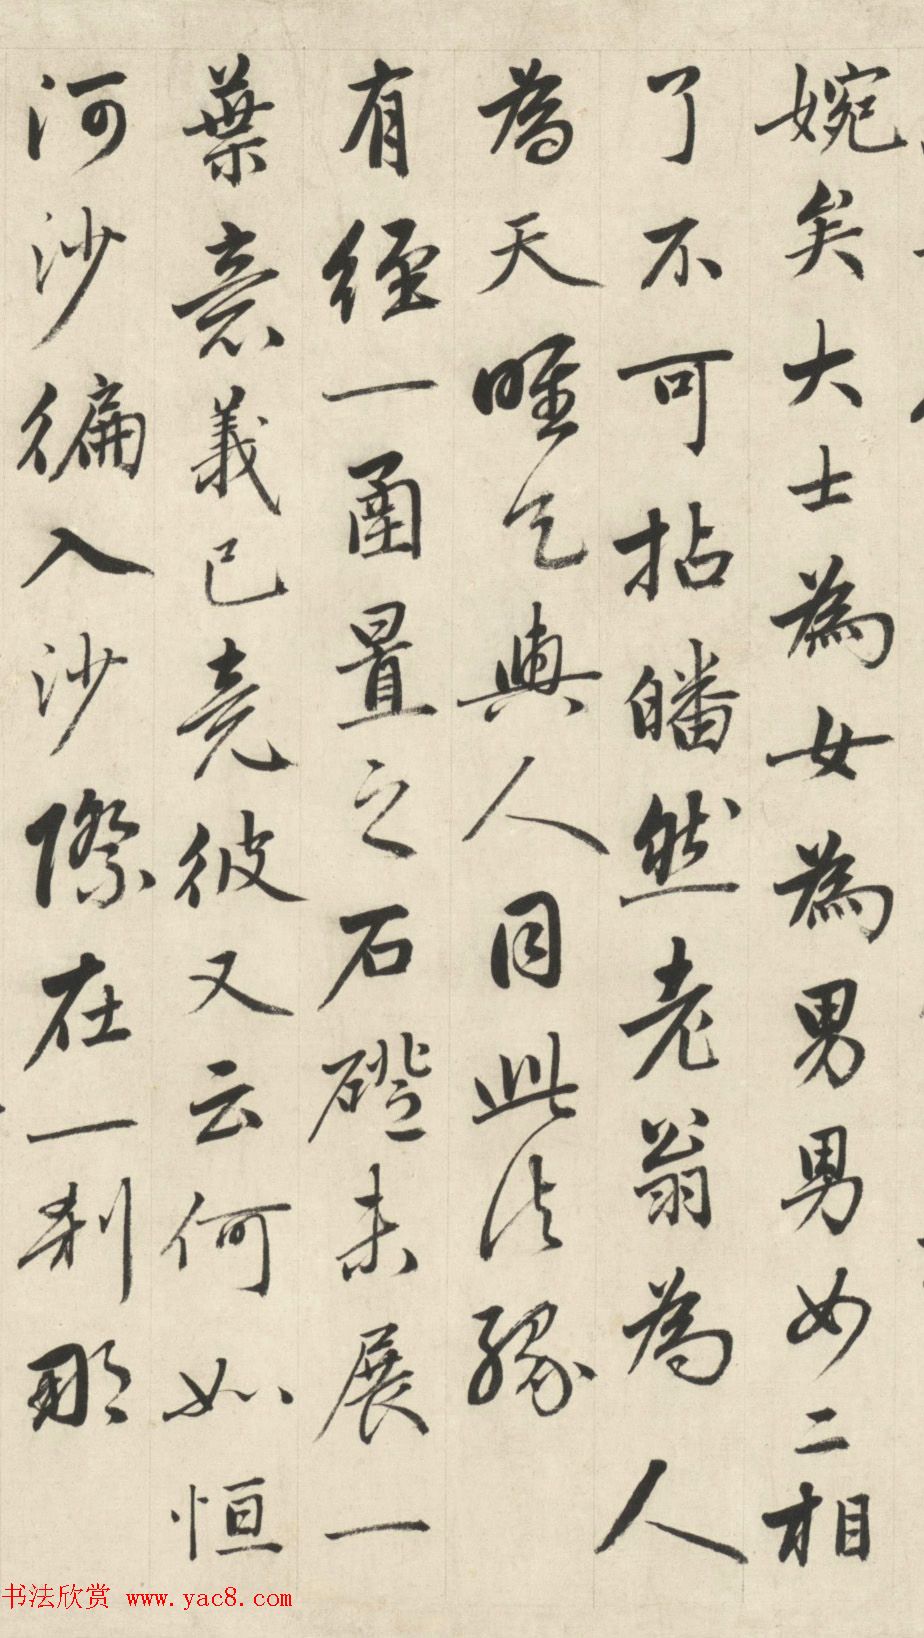 婉矣大士為女為男男女二相
了不可拈皤然老翁為人
為天唯乞與人同此法緣
有經一函置之石磴未展一
葉意義已竟彼又云何如恒
河沙徧入沙際在一剎那
书法欣赏 www.yac8.com